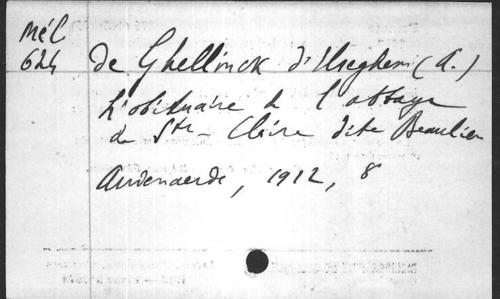 Mél
624
de Ghellinck d'Elseghem (A.)
L'obituaire de l'abbaye
de Ste - Claire dite Beaulieu
Audenaerde, 1912, 8